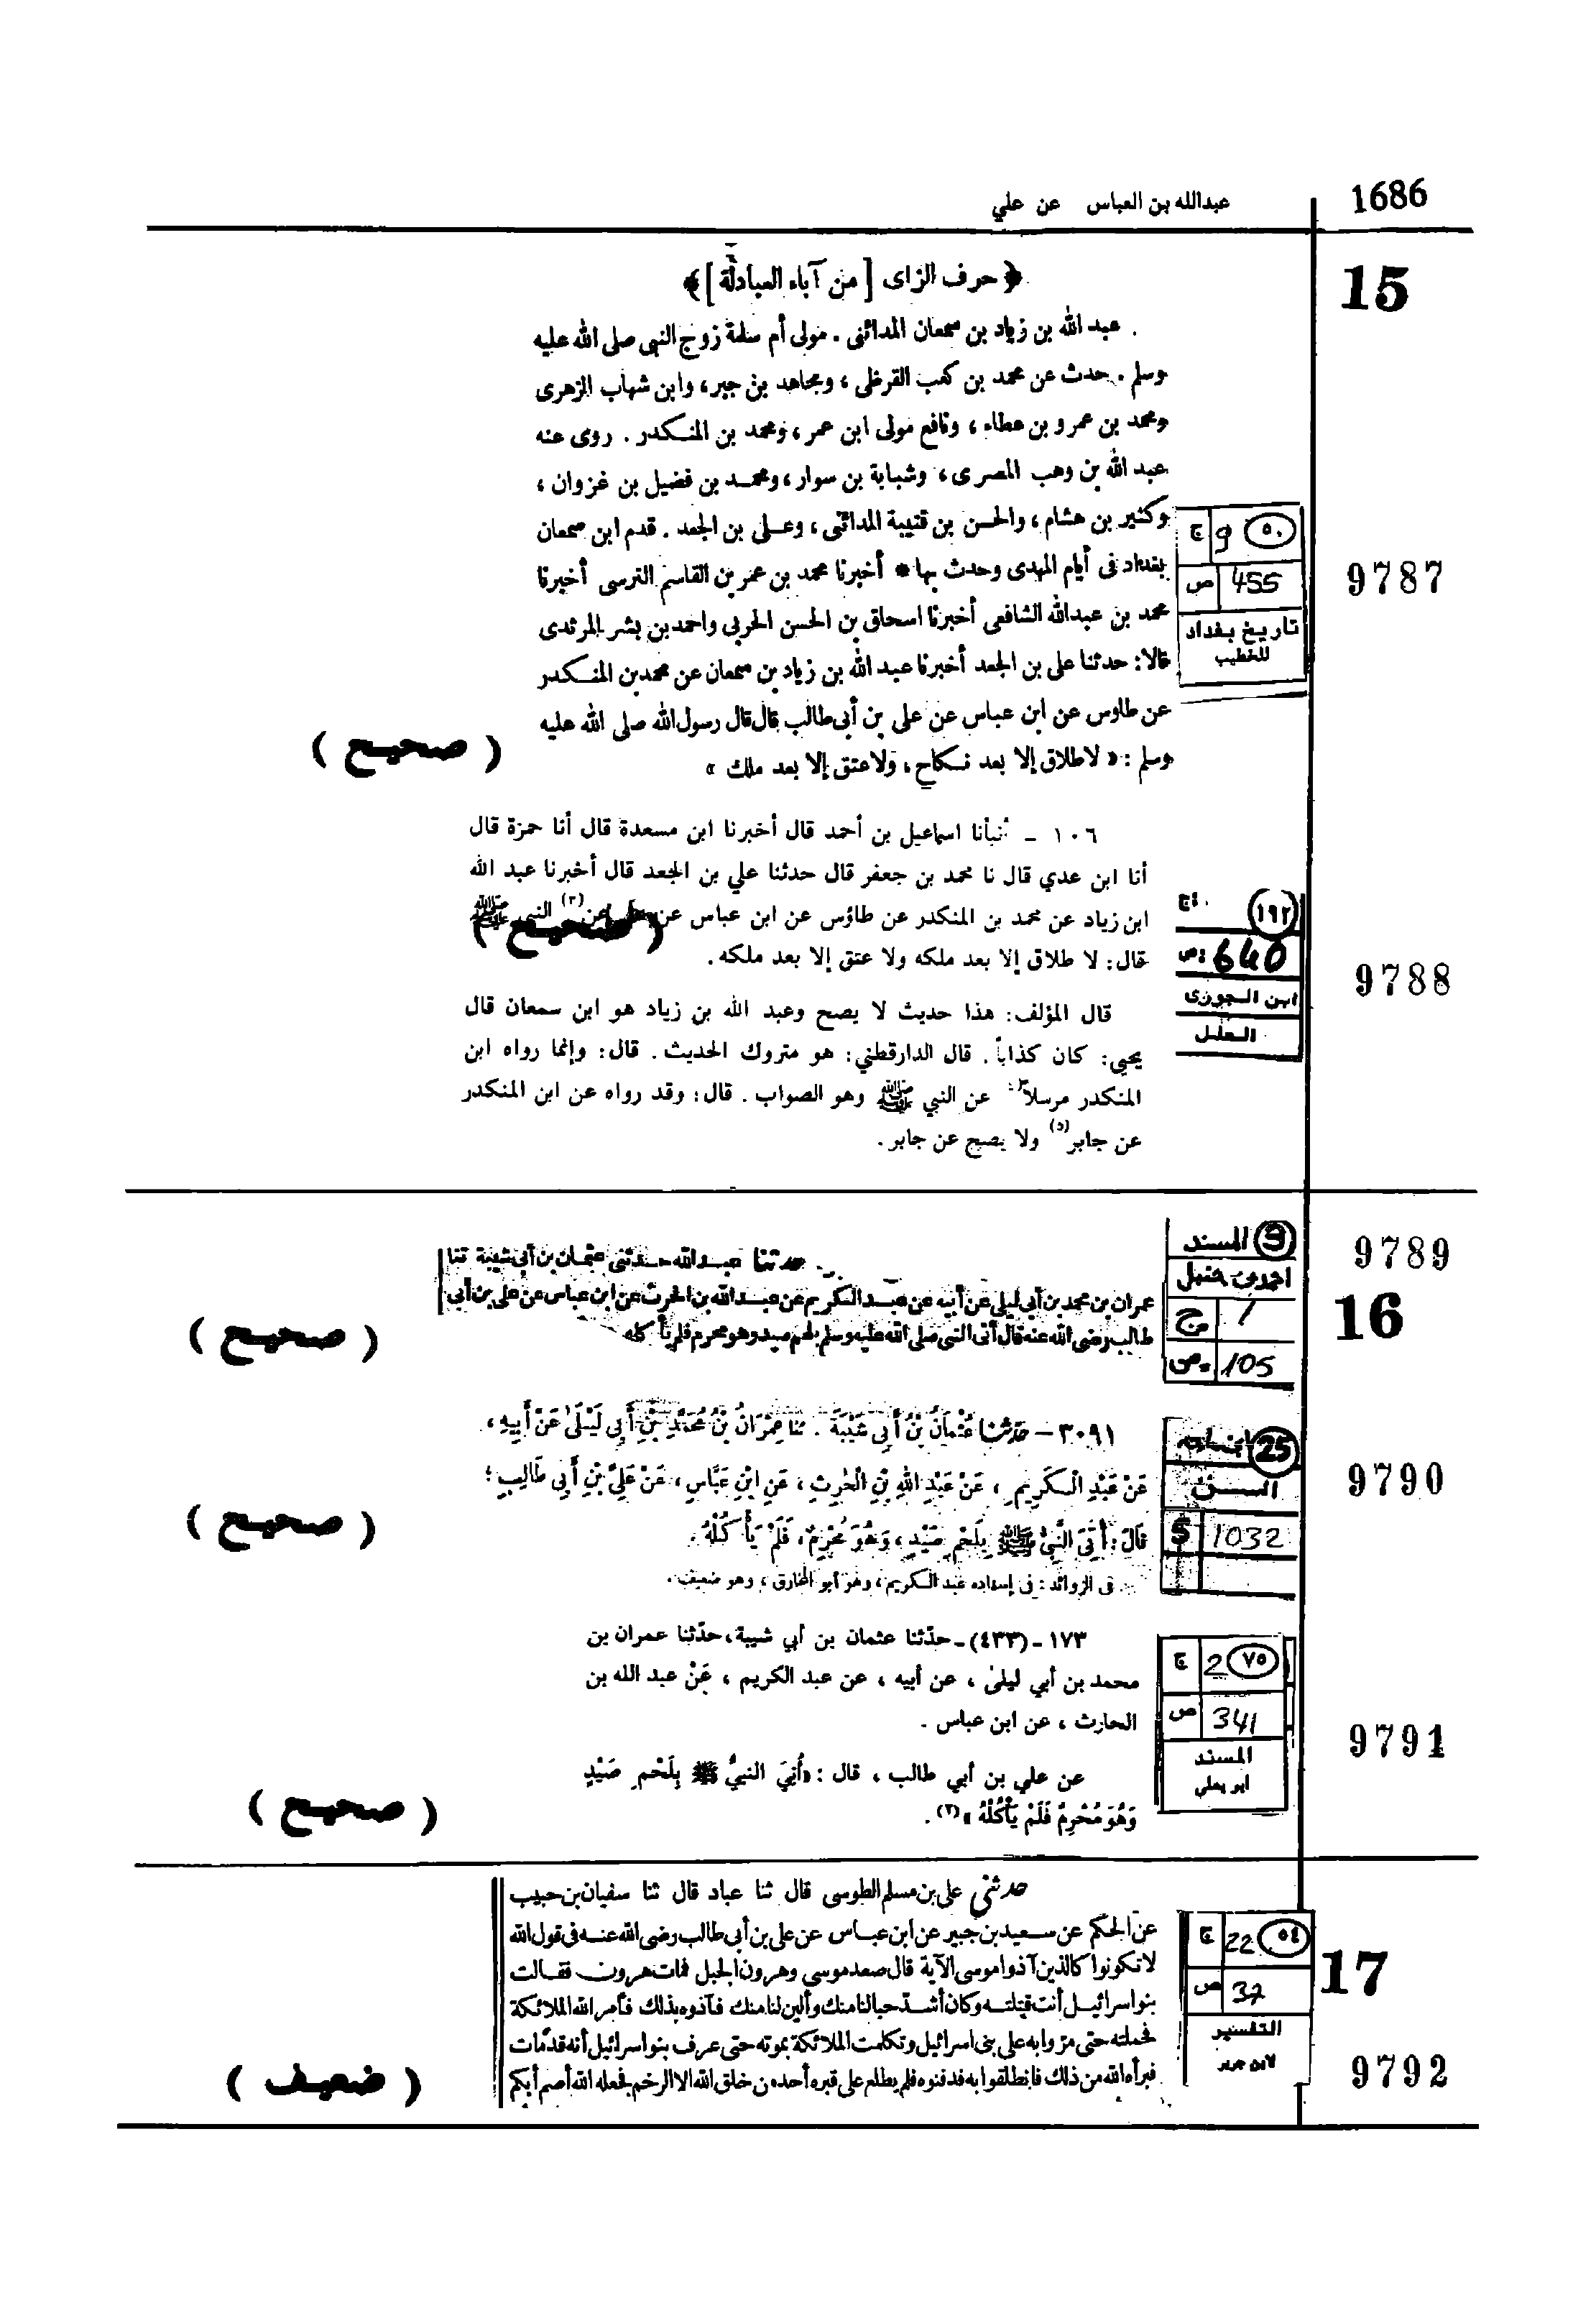 1686
عبدالله بن العباس عن علي
15
﴿ حرف الزاى [ من آباء العبادلة ] ﴾
. عبد الله بن زياد بن سمعان المدائنى . مولى أم سلمة زوج النبى صلى الله عليه
وسلم . حدث عن محمد بن كعب القرظى ، ومجاهد بن جبر ، وابن شهاب الزهرى
ومحمد بن عمرو بن عطاء ، ونافع مولى ابن عمر ، ومحمد بن المنكدر . روى عنه
عبد الله بن وهب المصرى ، وشبابة بن سوار ، ومحمد بن فضيل بن غزوان ،
وكثير بن هشام ، والحسن بن قتيبة المدائنى ، وعلى بن الجعد . قدم ابن سمعان
بغداد فى أيام المهدى وحدث بها * أخبرنا محمد بن عمر بن القاسم النرسى أخبرنا
محمد بن عبدالله الشافعى أخبرنا اسحاق بن الحسن الحربى واحمد بن بشر المرثدى
قالا: حدثنا على بن الجعد أخبرنا عبد الله بن زياد بن سمعان عن محمد بن المنكدر
عن طاوس عن ابن عباس عن على بن أبى طالب قال قال رسول الله صلى الله عليه
وسلم : « لا طلاق إلا بعد نكاح ، ولا عتق إلا بعد ملك »
( صحيح )
ج 9 ٥٠
ص 455
تاريخ بغداد
للخطيب
9787
١٠٦ - أنبأنا اسماعيل بن أحمد قال أخبرنا ابن مسعدة قال أنا حمزة قال
أنا ابن عدي قال نا محمد بن جعفر قال حدثنا علي بن الجعد قال أخبرنا عبد الله
ابن زياد عن محمد بن المنكدر عن طاؤس عن ابن عباس عن علي عن (٣) النبي ﷺ
قال: لا طلاق إلا بعد ملكه ولا عتق إلا بعد ملكه .
( صحيح )
قال المؤلف: هذا حديث لا يصح وعبد الله بن زياد هو ابن سمعان قال
يحيى: كان كذاباً . قال الدارقطني: هو متروك الحديث . قال: وإنما رواه ابن
المنكدر مرسلاً عن النبي ﷺ وهو الصواب . قال: وقد رواه عن ابن المنكدر
عن جابر (٥) ولا يصح عن جابر .
ج: ١٩٢
ص: 640
ابن الجوزى
العلل
9788
حدثنا عبد الله حدثنى عثمان بن أبى شيبة ثنا
عمران بن محمد بن أبى ليلى عن أبيه عن عبد الكريم عن عبد الله بن الحرث عن ابن عباس عن على بن أبى
طالب رضى الله عنه قال أتى النبى صلى الله عليه وسلم بلحم صيد وهو محرم فلم يأكله
( صحيح )
3 المسند
احمد بن حنبل
ج 1
ص 105
9789
16
٣٠٩١ - حَدَّثَنَا عُثْمَانُ بْنُ أَبِي شَيْبَةَ . ثنا عِمْرَانُ بْنُ مُحَمَّدِ بْنِ أَبِي لَيْلَىٰ عَنْ أَبِيهِ ،
عَنْ عَبْدِ الْكَرِيمِ ، عَنْ عَبْدِ اللهِ بْنِ الْحٰرِثِ ، عَنِ ابْنِ عَبَّاسٍ ، عَنْ عَلِيِّ بْنِ أَبِي طَالِبٍ ؛
قَالَ : أُتِيَ النَّبِيُّ ﷺ بِلَحْمِ صَيْدٍ ، وَهُوَ مُحْرِمٌ ، فَلَمْ يَأْكُلْهُ .
فى الزوائد : فى إسناده عبد الكريم ، وهو أبو المخارق ، وهو ضعيف .
( صحيح )
25
السنن
5 1032
9790
١٧٣ - (٤٣٣) - حدّثنا عثمان بن أبي شيبة ، حدّثنا عمران بن
محمد بن أبي ليلىٰ ، عن أبيه ، عن عبد الكريم ، عَنْ عبد الله بن
الحارث ، عن ابن عباس .
عن علي بن أبي طالب ، قال : «أُتِيَ النبيُّ ﷺ بِلَحْمِ صَيْدٍ
وَهُوَ مُحْرِمٌ فَلَمْ يَأْكُلْهُ » (٣) .
( صحيح )
ج 2 ٧٥
ص 341
المسند
ابو يعلى
9791
حدثنى على بن مسلم الطوسى قال ثنا عباد قال ثنا سفيان بن حبيب
عن الحكم عن سعيد بن جبير عن ابن عباس عن على بن أبى طالب رضى الله عنه فى قول الله
لا تكونوا كالذين آذوا موسى الآية قال صعد موسى وهرون الجبل فمات هرون فقالت
بنو اسرائيل أنت قتلته وكان أشد حبا لنا منك وألين لنا منك فآذوه بذلك فأمر الله الملائكة
فحملته حتى مروا به على بنى اسرائيل وتكلمت الملائكة بموته حتى عرف بنو اسرائيل أنه قد مات
فبرأه الله من ذلك فانطلقوا به فدفنوه فلم يطلع على قبره أحد من خلق الله الا الرخم فجعله الله أصم أبكم
( ضعيف )
ج 22 ٥٤
ص 32
التفسير
لابن جرير
17
9792